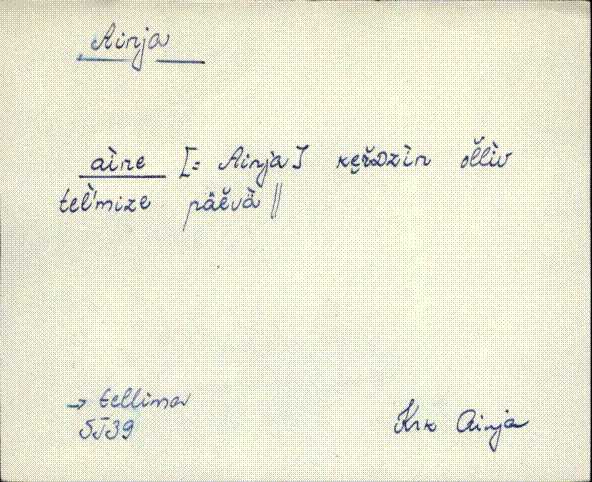 Ainja
aìne [= Ainja] keŕ̌ʙzìn òĺlìv
tel'mize päĕvà̈ ||
→ tellima
SŤ39
Krk Ainja